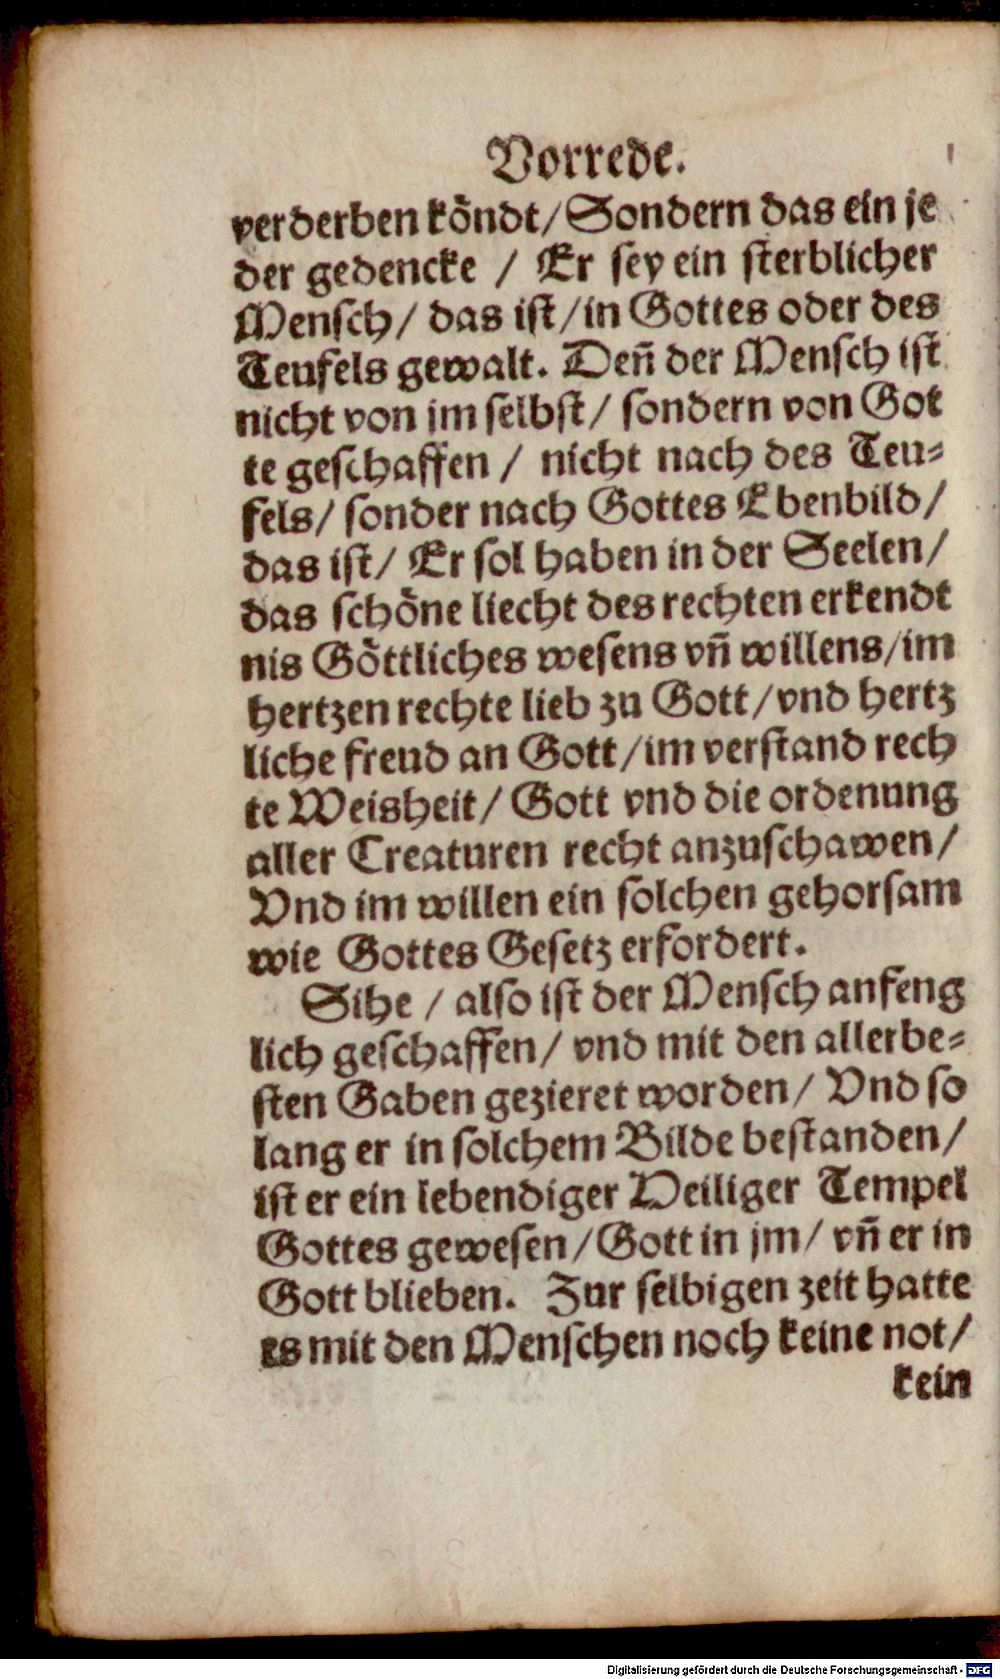 Vorrede.
verderben köndt/Sondern das ein je
der gedencke / Er sey ein sterblicher
Mensch/ das ist/in Gottes oder des
Teufels gewalt. Den̄ der Mensch ist
nicht von jm selbst/ sondern von Got
te geschaffen / nicht nach des Teu-
fels/ sonder nach Gottes Ebenbild/
das ist/ Er sol haben in der Seelen/
das schöne liecht des rechten erkendt
nis Göttliches wesens vn̄ willens/im
hertzen rechte lieb zu Gott/vnd hertz
liche freud an Gott/im verstand rech
te Weisheit/ Gott vnd die ordenung
aller Creaturen recht anzuschawen/
Vnd im willen ein solchen gehorsam
wie Gottes Gesetz erfordert.
Sihe / also ist der Mensch anfeng
lich geschaffen/ vnd mit den allerbe-
sten Gaben gezieret worden/ Vnd so
lang er in solchem Bilde bestanden/
ist er ein lebendiger Heiliger Tempel
Gottes gewesen/Gott in jm/ vn̄ er in
Gott blieben. Zur selbigen zeit hatte
es mit den Menschen noch keine not/
kein
Digitalisierung gefördert durch die Deutsche Forschungsgemeinschaft - DFG